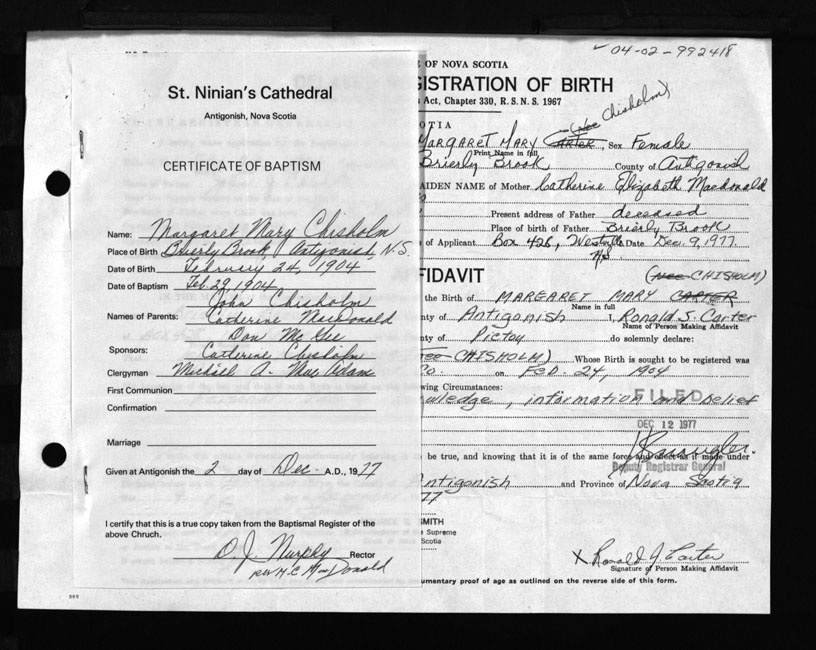 St. Ninian's Cathedral
Antigonish, Nova Scotia
CERTIFICATE OF BAPTISM
Name: Margaret Mary Chisholm
Place of Birth Brierly Brook, Antigonish, N.S.
Date of Birth February 24, 1904
Date of Baptism Feb. 29, 1904
John Chisholm
Names of Parents: Catherine MacDonald
Don McGee
Sponsors: Catherine Chisholm
Clergyman Michael A. MacAdam
First Communion
Confirmation
Marriage
Given at Antigonish the 2 day of Dec. A.D., 1977
I certify that this is a true copy taken from the Baptismal Register of the
above Chruch.
D. J. Murphy Rector
per H.C. MacDonald
04-02-992418
E OF NOVA SCOTIA
GISTRATION OF BIRTH
s Act, Chapter 330, R.S.N.S. 1967
(nee Chisholm)
COTIA
MARGARET MARY CARTER, Sex Female
Print Name in full
Brierly Brook County of Antigonish
AIDEN NAME of Mother Catherine Elizabeth Macdonald
Present address of Father deceased
Place of birth of Father Brierly Brook
of Applicant Box 428, Westville Date Dec. 9, 1977
N.S.
FIDAVIT
(nee CHISHOLM)
the Birth of MARGARET MARY CARTER
Name in full
nty of Antigonish I, Ronald S. Carter
Name of Person Making Affidavit
nty of Pictou do solemnly declare:
nee CHISHOLM) Whose Birth is sought to be registered was
Co on FEB. 24, 1904
wing Circumstances:
wledge, information and belief
FILED
DEC 12 1977
be true, and knowing that it is of the same force and effect as if made under
Deputy Registrar General
Antigonish and Province of Nova Scotia
77
SMITH
the Supreme
Scotia
X Ronald J. Carter
Signature of Person Making Affidavit
umentary proof of age as outlined on the reverse side of this form.